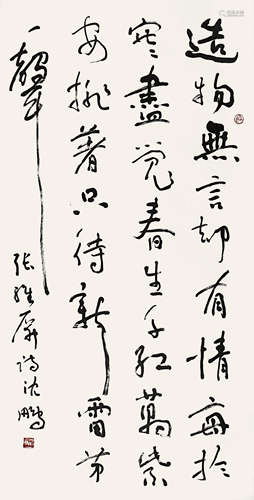 造物無言却有情每於
寒盡覺春生千紅萬紫
安排著只待新雷第
一聲
張維屏詩沈鵬